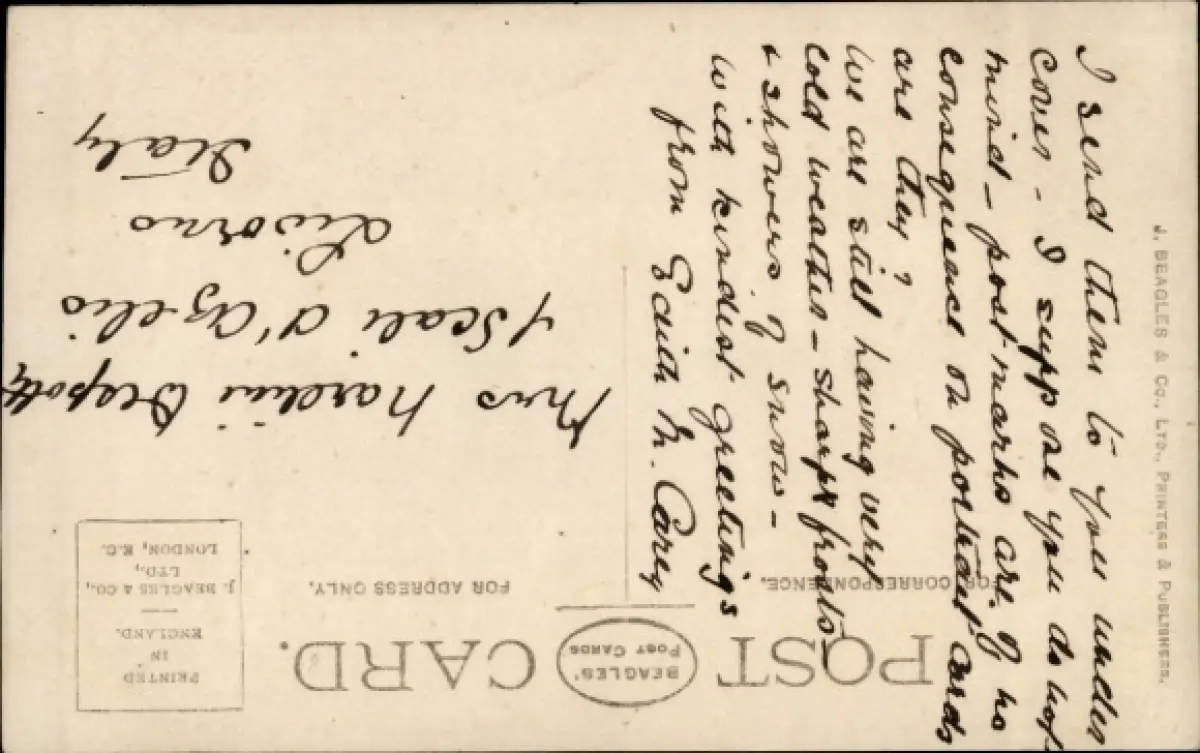 POST CARD.
BEAGLES'
POST CARDS
FOR CORRESPONDENCE.
FOR ADDRESS ONLY.
PRINTED
IN
ENGLAND.
J. BEAGLES & CO.,
LTD.,
LONDON, E.C.
J. BEAGLES & CO., LTD., PRINTERS & PUBLISHERS.
I send them to you under
cover - I suppose you do not
mind - post marks are of no
consequence on portrait cards
are they?
We are still having very
cold weather - sharp frosts
& showers of snow -
with kindest greetings
from Edith M. Carey
Mrs Nardini Despotti
Scali d'Azelio
Livorno
Italy